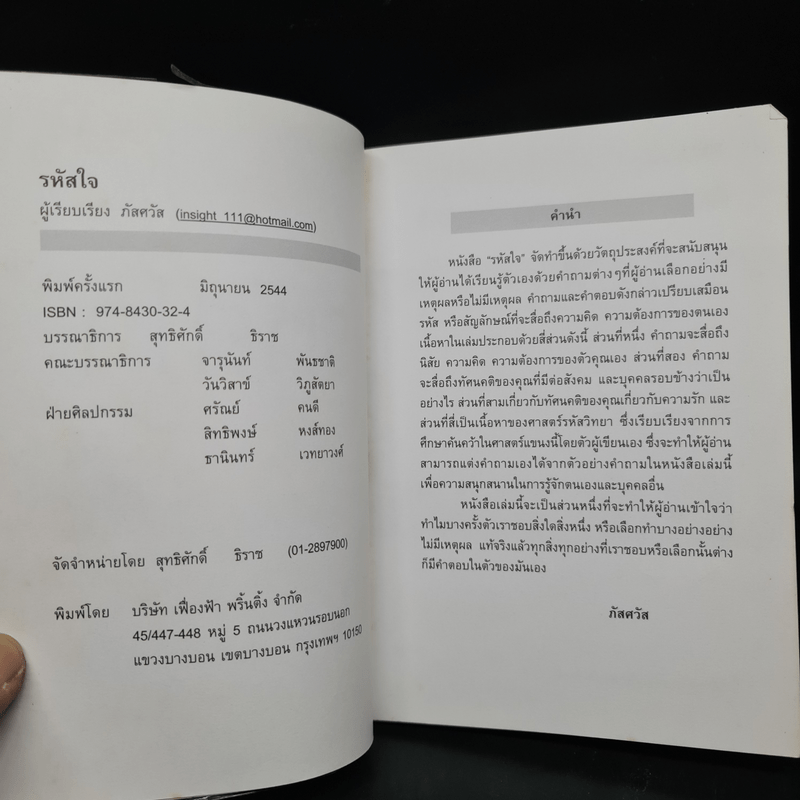 รหัสใจ
ผู้เรียบเรียง ภัสศวัส (insight_111@hotmail.com)
พิมพ์ครั้งแรก มิถุนายน 2544
ISBN : 974-8430-32-4
บรรณาธิการ สุทธิศักดิ์ ธิราช
คณะบรรณาธิการ จารุนันท์ พันธชาติ
วันวิสาข์ วิภูสัตยา
ฝ่ายศิลปกรรม ศรัณย์ คนดี
สิทธิพงษ์ หงส์ทอง
ธานินทร์ เวทยาวงศ์
จัดจำหน่ายโดย สุทธิศักดิ์ ธิราช (01-2897900)
พิมพ์โดย บริษัท เฟื่องฟ้า พริ้นติ้ง จำกัด
45/447-448 หมู่ 5 ถนนวงแหวนรอบนอก
แขวงบางบอน เขตบางบอน กรุงเทพฯ 10150
คำนำ
หนังสือ "รหัสใจ" จัดทำขึ้นด้วยวัตถุประสงค์ที่จะสนับสนุน
ให้ผู้อ่านได้เรียนรู้ตัวเองด้วยคำถามต่างๆที่ผู้อ่านเลือกอย่างมี
เหตุผลหรือไม่มีเหตุผล คำถามและคำตอบดังกล่าวเปรียบเสมือน
รหัส หรือสัญลักษณ์ที่จะสื่อถึงความคิด ความต้องการของตนเอง
เนื้อหาในเล่มประกอบด้วยสี่ส่วนดังนี้ ส่วนที่หนึ่ง คำถามจะสื่อถึง
นิสัย ความคิด ความต้องการของตัวคุณเอง ส่วนที่สอง คำถาม
จะสื่อถึงทัศนคติของคุณที่มีต่อสังคม และบุคคลรอบข้างว่าเป็น
อย่างไร ส่วนที่สามเกี่ยวกับทัศนคติของคุณเกี่ยวกับความรัก และ
ส่วนที่สี่เป็นเนื้อหาของศาสตร์รหัสวิทยา ซึ่งเรียบเรียงจากการ
ศึกษาค้นคว้าในศาสตร์แขนงนี้โดยตัวผู้เขียนเอง ซึ่งจะทำให้ผู้อ่าน
สามารถแต่งคำถามเองได้จากตัวอย่างคำถามในหนังสือเล่มนี้
เพื่อความสนุกสนานในการรู้จักตนเองและบุคคลอื่น
หนังสือเล่มนี้จะเป็นส่วนหนึ่งที่จะทำให้ผู้อ่านเข้าใจว่า
ทำไมบางครั้งตัวเราชอบสิ่งใดสิ่งหนึ่ง หรือเลือกทำบางอย่างอย่าง
ไม่มีเหตุผล แท้จริงแล้วทุกสิ่งทุกอย่างที่เราชอบหรือเลือกนั้นต่าง
ก็มีคำตอบในตัวของมันเอง
ภัสศวัส